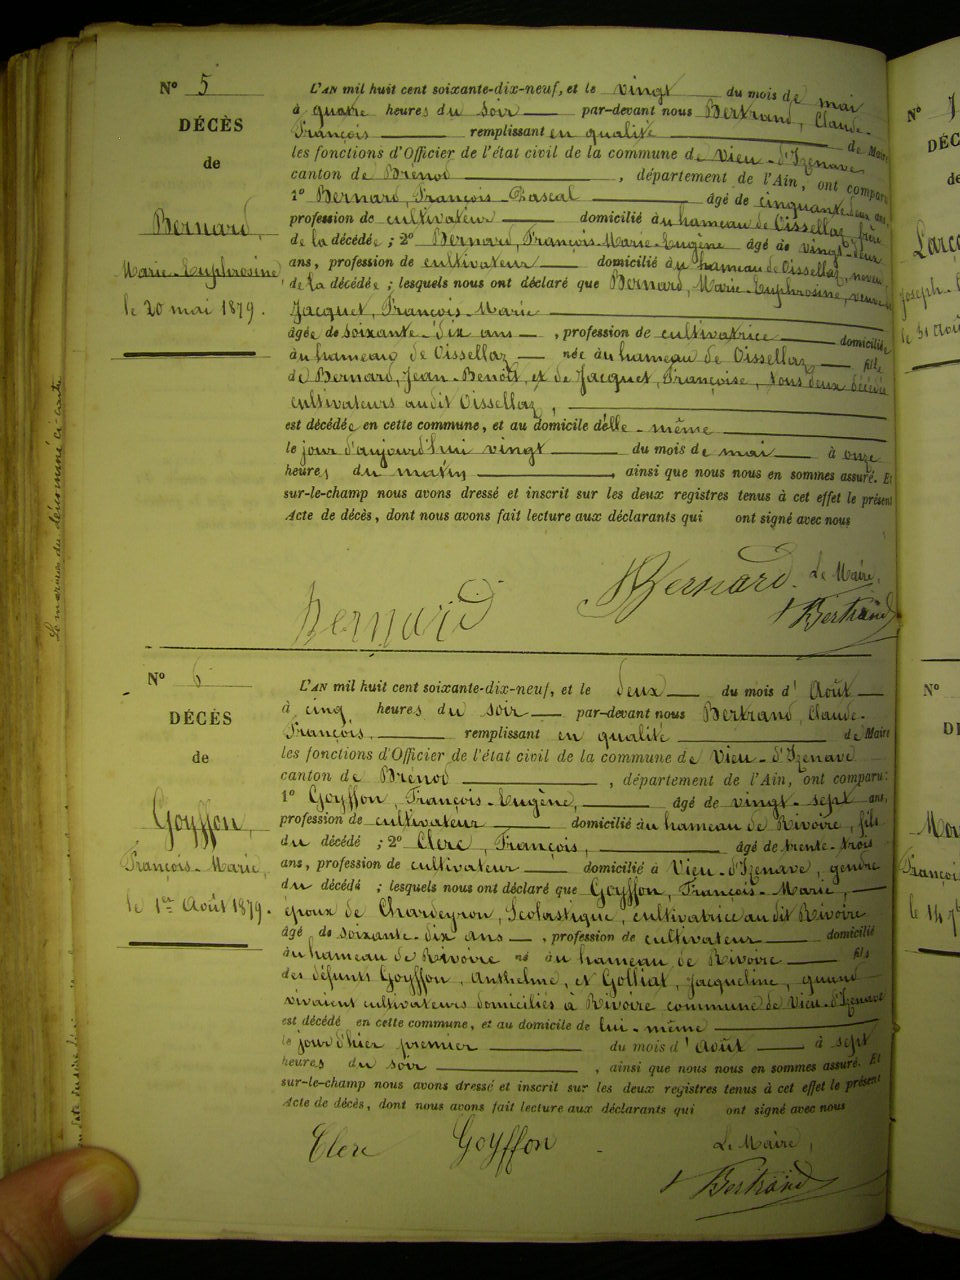 N° 5
DÉCÈS
de
Bernard,
Marie-Euphrosine
le 20 mai 1879.
L'AN mil huit cent soixante-dix-neuf, et le vingt du mois de mai
à quatre heures du soir par-devant nous Bertrand, Claude-
François remplissant en qualité de Maire
les fonctions d'Officier de l'état civil de la commune de Vieu-d'Izenave
canton de Brénod, département de l'Ain, ont comparu
1° Bernard, François-Pascal âgé de cinquante-deux ans,
profession de cultivateur domicilié au hameau de Oissellaz, frère
de la décédée ; 2° Bernard, François-Marie-Eugène âgé de vingt-deux
ans, profession de cultivateur domicilié au hameau de Oissellaz, neveu
de la décédée ; lesquels nous ont déclaré que Bernard, Marie-Euphrosine, veuve de
Jacquet, François-Marie
âgée de soixante-dix ans, profession de cultivatrice domiciliée
au hameau de Oissellaz née au hameau de Oissellaz fille
de Bernard, Jean-Benoît, et de Jacquet, Françoise, tous deux décédés
cultivateurs audit Oissellaz,
est décédée en cette commune, et au domicile d'elle-même
le jour d'aujourd'hui vingt du mois de mai à onze
heures du matin, ainsi que nous nous en sommes assuré. Et
sur-le-champ nous avons dressé et inscrit sur les deux registres tenus à cet effet le présent
Acte de décès, dont nous avons fait lecture aux déclarants qui ont signé avec nous
Bernard
Bernard
Le Maire,
Bertrand
N° 6
DÉCÈS
de
Goyffon,
François-Marie,
le 1er Août 1879.
L'AN mil huit cent soixante-dix-neuf, et le deux du mois d'Août
à cinq heures du soir par-devant nous Bertrand, Claude-
François, remplissant en qualité de Maire
les fonctions d'Officier de l'état civil de la commune de Vieu-d'Izenave
canton de Brénod, département de l'Ain, ont comparu:
1° Goyffon, François-Eugène, âgé de vingt-sept ans,
profession de cultivateur domicilié au hameau de Rivoire, fils
du décédé ; 2° Clerc, François, âgé de trente-trois
ans, profession de cultivateur domicilié à Vieu-d'Izenave, gendre
du décédé ; lesquels nous ont déclaré que Goyffon, François-Marie,
époux de Chardeyron, Scolastique, cultivatrice au dit Rivoire
âgé de soixante-dix ans, profession de cultivateur domicilié
au hameau de Rivoire né au hameau de Rivoire fils
des défunts Goyffon, Anthelme, et Golliat, Jacqueline, quand
vivaient cultivateurs domiciliés à Rivoire commune de Vieu-d'Izenave
est décédé en cette commune, et au domicile de lui-même
le jour d'hier premier du mois d'Août à sept
heures du soir, ainsi que nous nous en sommes assuré. Et
sur-le-champ nous avons dressé et inscrit sur les deux registres tenus à cet effet le présent
Acte de décès, dont nous avons fait lecture aux déclarants qui ont signé avec nous
Clerc
Goyffon
Le Maire,
Bertrand
N°
DÉC
de
N°